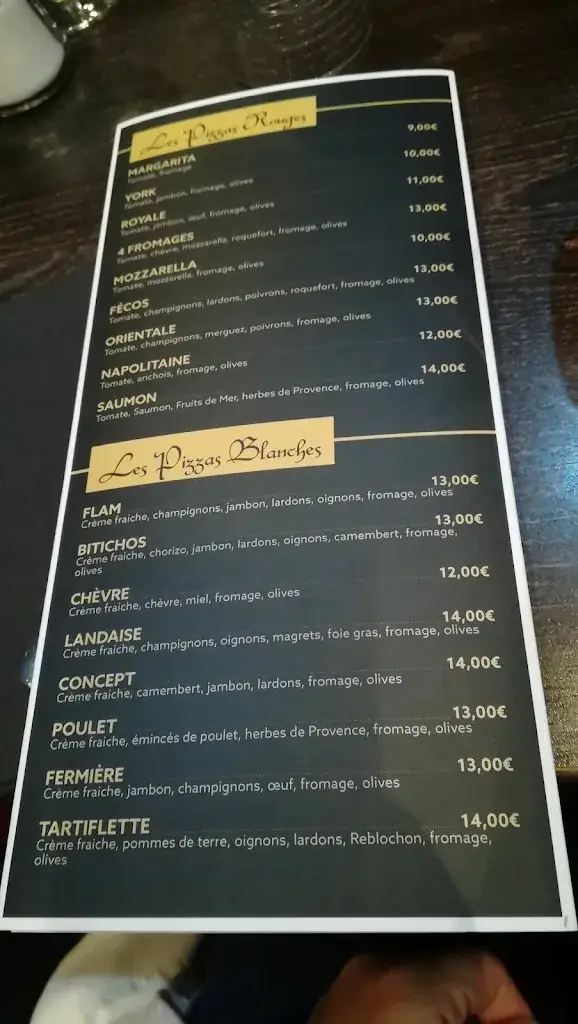 Les Pizzas Rouges
MARGARITA 9,00€
Tomate, fromage
YORK 10,00€
Tomate, jambon, fromage, olives
ROYALE 11,00€
Tomate, jambon, œuf, fromage, olives
4 FROMAGES 13,00€
Tomate, chèvre, mozzarella, roquefort, fromage, olives
MOZZARELLA 10,00€
Tomate, mozzarella, fromage, olives
FÉCOS 13,00€
Tomate, champignons, lardons, poivrons, roquefort, fromage, olives
ORIENTALE 13,00€
Tomate, champignons, merguez, poivrons, fromage, olives
NAPOLITAINE 12,00€
Tomate, anchois, fromage, olives
SAUMON 14,00€
Tomate, Saumon, Fruits de Mer, herbes de Provence, fromage, olives
Les Pizzas Blanches
FLAM 13,00€
Crème fraiche, champignons, jambon, lardons, oignons, fromage, olives
BITICHOS 13,00€
Crème fraiche, chorizo, jambon, lardons, oignons, camembert, fromage,
olives
CHÈVRE 12,00€
Crème fraiche, chèvre, miel, fromage, olives
LANDAISE 14,00€
Crème fraiche, champignons, oignons, magrets, foie gras, fromage, olives
CONCEPT 14,00€
Crème fraiche, camembert, jambon, lardons, fromage, olives
POULET 13,00€
Crème fraiche, émincés de poulet, herbes de Provence, fromage, olives
FERMIÈRE 13,00€
Crème fraiche, jambon, champignons, œuf, fromage, olives
TARTIFLETTE 14,00€
Crème fraiche, pommes de terre, oignons, lardons, Reblochon, fromage,
olives